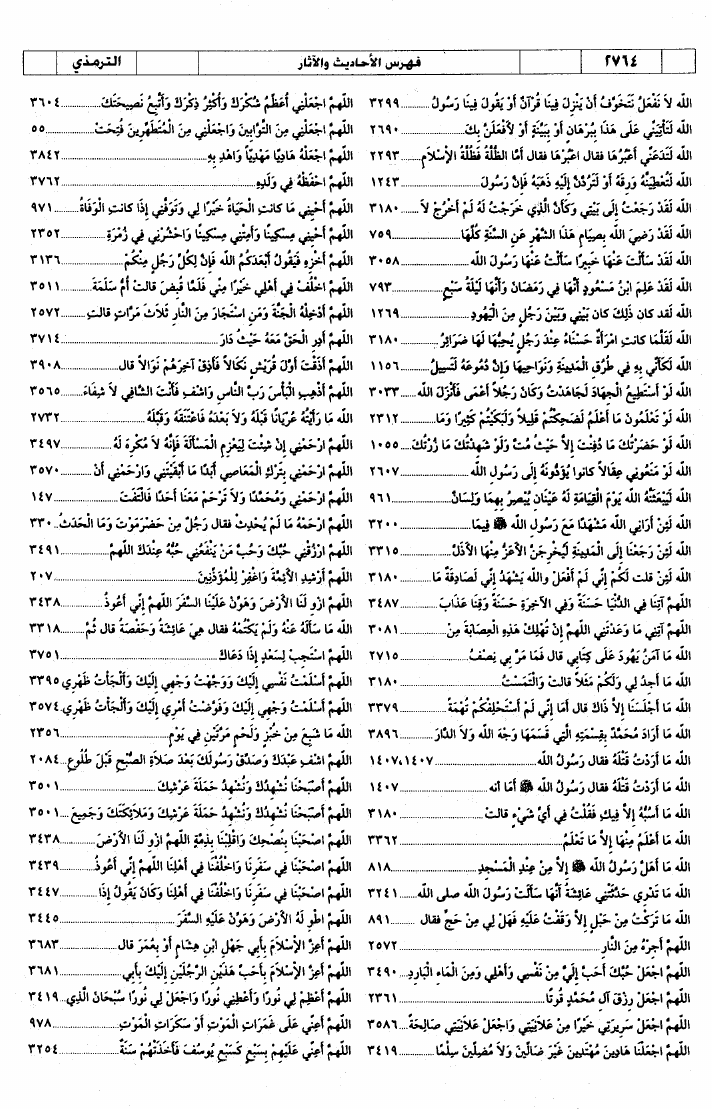 ٢٧٦٤
فهرس الأحاديث والآثار
الترمذي
الله لاَ نَفْعَلُ نَتَخَوَّفُ أَنْ يَنْزِلَ فِينَا قُرْآنٌ أَوْ يَقُولَ فِينَا رَسُولُ ٣٢٩٩
الله لَتَأْتِيَنِّي عَلَى هَذَا بِبُرْهَانٍ أَوْ بِبَيِّنَةٍ أَوْ لأَفْعَلَنَّ بِكَ ٢٦٩٠
الله لَتَدَعَنِّي أَعْبُرُهَا فقال اعبُرْهَا فقال أَمَّا الظُّلَّةُ فَظُلَّةُ الإسْلاَمِ ٢٢٩٣
الله لَتُعْطِيَنَّهُ وَرِقَهُ أَوْ لَتَرُدَّنَّ إِلَيْهِ ذَهَبَهُ فَإِنَّ رَسُولَ ١٢٤٣
الله لَقَدْ رَجَعْتُ إِلَى بَيْتِي وَكَأَنَّ الَّذِي خَرَجْتُ لَهُ لَمْ أَخْرُجْ لاَ ٣١٨٠
الله لَقَدْ رَضِيَ الله بِصِيَامِ هَذَا الشَّهْرِ عَنِ السَّنَةِ كُلِّهَا ٧٥٩
الله لَقَدْ سَأَلْتَ عَنْهَا خَبِيرًا سَأَلْتُ عَنْهَا رَسُولَ الله ٣٠٥٨
الله لَقَدْ عَلِمَ ابْنُ مَسْعُودٍ أَنَّهَا فِي رَمَضَانَ وَأَنَّهَا لَيْلَةُ سَبْعٍ ٧٩٣
الله لَقد كان ذَلِكَ كان بَيْنِي وَبَيْنَ رَجُلٍ مِنَ الْيَهُودِ ١٢٦٩
الله لَقَلَّمَا كانت امْرَأَةٌ حَسْنَاءُ عِنْدَ رَجُلٍ يُحِبُّهَا لَهَا ضَرَائِرُ ٣١٨٠
الله لَكَأَنِّي بِهِ فِي طُرُقِ الْمَدِينَةِ وَنَوَاحِيهَا وَإِنَّ دُمُوعَهُ لَتَسِيلُ ١١٥٦
الله لَوْ أَسْتَطِيعُ الْجِهَادَ لَجَاهَدْتُ وَكَانَ رَجُلاً أَعْمَى فَأَنْزَلَ الله ٣٠٣٣
الله لَوْ تَعْلَمُونَ مَا أَعْلَمُ لَضَحِكْتُمْ قَلِيلاً وَلَبَكَيْتُمْ كَثِيرًا وَمَا ٢٣١٢
الله لَوْ حَضَرْتُكَ مَا دُفِنْتَ إِلاَّ حَيْثُ مُتَّ وَلَوْ شَهِدْتُكَ مَا زُرْتُكَ ١٠٥٥
الله لَوْ مَنَعُونِي عِقَالاً كانوا يُؤَدُّونَهُ إِلَى رَسُولِ الله ٢٦٠٧
الله لَيَبْعَثَنَّهُ الله يَوْمَ الْقِيَامَةِ لَهُ عَيْنَانِ يُبْصِرُ بِهِمَا وَلِسَانٌ ٩٦١
الله لَئِنْ أَرَانِي الله مَشْهَدًا مَعَ رَسُولِ الله ﷺ فِيمَا ٣٢٠٠
الله لَئِنْ رَجَعْنَا إِلَى الْمَدِينَةِ لَيُخْرِجَنَّ الأَعَزُّ مِنْهَا الأَذَلَّ ٣٣١٥
الله لَئِنْ قلت لَكُمْ إِنِّي لَمْ أَفْعَلْ والله يَشْهَدُ إِنِّي لَصَادِقَةٌ مَا ٣١٨٠
اللهمَّ آتِنَا فِي الدُّنْيَا حَسَنَةً وَفِي الآخِرَةِ حَسَنَةً وَقِنَا عَذَابَ ٣٤٨٧
اللهمَّ آتِنِي مَا وَعَدْتَنِي اللهمَّ إِنْ تُهْلِكْ هَذِهِ الْعِصَابَةَ مِنْ ٣٠٨١
الله مَا آمَنُ يَهُودَ عَلَى كِتَابِي قال فَمَا مَرَّ بِي نِصْفُ ٢٧١٥
الله مَا أَجِدُ لِي وَلَكُمْ مَثَلاً قالت وَالْتَمَسْتُ ٣١٨٠
الله مَا أَجْلَسَنَا إِلاَّ ذَاكَ قال أَمَا إِنِّي لَمْ أَسْتَحْلِفْكُمْ تُهْمَةً ٣٣٧٩
الله مَا أَرَادَ مُحَمَّدٌ بِقِسْمَتِهِ الَّتِي قَسَمَهَا وَجْهَ الله وَلاَ الدَّارَ ٣٨٩٦
الله مَا أَرَدْتُ قَتْلَهُ فقال رسُولُ الله ١٤٠٧،١٤٠٧
الله مَا أَرَدْتُ قَتْلَهُ فقال رَسُولُ الله ﷺ أَمَا أنه ١٤٠٧
الله مَا أَسُبُّهُ إِلاَّ فِيكِ فَقُلْتُ فِي أَيِّ شَيْءٍ قالت ٣١٨٠
الله مَا أَعْلَمُ مِنْهَا إِلاَّ مَا تَعْلَمُ ٣٣٦٢
الله مَا أَهَلَّ رَسُولُ الله ﷺ إِلاَّ مِنْ عِنْدِ الْمَسْجِدِ ٨١٨
الله مَا تَدْرِي حَدَّثَتْنِي عَائِشَةُ أَنَّهَا سَأَلَتْ رَسُولَ الله صلى الله ٣٢٤١
الله مَا تَرَكْتُ مِنْ حَبْلٍ إِلاَّ وَقَفْتُ عَلَيْهِ فَهَلْ لِي مِنْ حَجٍّ فقال ٨٩١
اللهمَّ أَجِرْهُ مِنَ النَّارِ ٢٥٧٢
اللهمَّ اجْعَلْ حُبَّكَ أَحَبَّ إِلَيَّ مِنْ نَفْسِي وَأَهْلِي وَمِنَ الْمَاءِ الْبَارِدِ ٣٤٩٠
اللهمَّ اجْعَلْ رِزْقَ آلِ مُحَمَّدٍ قُوتًا ٢٣٦١
اللهمَّ اجْعَلْ سَرِيرَتِي خَيْرًا مِنْ عَلاَنِيَتِي وَاجْعَلْ عَلاَنِيَتِي صَالِحَةً ٣٥٨٦
اللهمَّ اجْعَلْنَا هَادِينَ مُهْتَدِينَ غَيْرَ ضَالِّينَ وَلاَ مُضِلِّينَ سِلْمًا ٣٤١٩
اللهمَّ اجْعَلْنِي أُعَظِّمُ شُكْرَكَ وَأُكْثِرُ ذِكْرَكَ وَأَتَّبِعُ نَصِيحَتَكَ ٣٦٠٤
اللهمَّ اجْعَلْنِي مِنَ التَّوَّابِينَ وَاجْعَلْنِي مِنَ الْمُتَطَهِّرِينَ فُتِحَتْ ٥٥
اللهمَّ اجْعَلْهُ هَادِيًا مَهْدِيًّا وَاهْدِ بِهِ ٣٨٤٢
اللهمَّ احْفَظْهُ فِي وَلَدِهِ ٣٧٦٢
اللهمَّ أَحْيِنِي مَا كانت الْحَيَاةُ خَيْرًا لِي وَتَوَفَّنِي إِذَا كانت الْوَفَاةُ ٩٧١
اللهمَّ أَحْيِنِي مِسْكِينًا وَأَمِتْنِي مِسْكِينًا وَاحْشُرْنِي فِي زُمْرَةِ ٢٣٥٢
اللهمَّ أَخْزِهِ فَيَقُولُ أَبْعَدَكُمُ الله فَإِنَّ لِكُلِّ رَجُلٍ مِنْكُمْ ٣١٣٦
اللهمَّ اخْلُفْ فِي أَهْلِي خَيْرًا مِنِّي فَلَمَّا قُبِضَ قالت أُمُّ سَلَمَةَ ٣٥١١
اللهمَّ أَدْخِلْهُ الْجَنَّةَ وَمَنِ اسْتَجَارَ مِنَ النَّارِ ثَلاَثَ مَرَّاتٍ قالتِ ٢٥٧٢
اللهمَّ أَدِرِ الْحَقَّ مَعَهُ حَيْثُ دَارَ ٣٧١٤
اللهمَّ أَذَقْتَ أَوَّلَ قُرَيْشٍ نَكَالاً فَأَذِقْ آخِرَهُمْ نَوَالاً قال ٣٩٠٨
اللهمَّ أَذْهِبِ الْبَأْسَ رَبَّ النَّاسِ وَاشْفِ فَأَنْتَ الشَّافِي لاَ شِفَاءَ ٣٥٦٥
الله مَا رَأَيْتُهُ عُرْيَانًا قَبْلَهُ وَلاَ بَعْدَهُ فَاعْتَنَقَهُ وَقَبَّلَهُ ٢٧٣٢
اللهمَّ ارْحَمْنِي إِنْ شِئْتَ لِيَعْزِمِ الْمَسْأَلَةَ فَإِنَّهُ لاَ مُكْرِهَ لَهُ ٣٤٩٧
اللهمَّ ارْحَمْنِي بِتَرْكِ الْمَعَاصِي أَبَدًا مَا أَبْقَيْتَنِي وَارْحَمْنِي أَنْ ٣٥٧٠
اللهمَّ ارْحَمْنِي وَمُحَمَّدًا وَلاَ تَرْحَمْ مَعَنَا أَحَدًا فَالْتَفَتَ ١٤٧
اللهمَّ ارْحَمْهُ مَا لَمْ يُحْدِثْ فقال رَجُلٌ مِنْ حَضْرَمَوْتَ وَمَا الْحَدَثُ ٣٣٠
اللهمَّ ارْزُقْنِي حُبَّكَ وَحُبَّ مَنْ يَنْفَعُنِي حُبُّهُ عِنْدَكَ اللهمَّ ٣٤٩١
اللهمَّ أَرْشِدِ الأَئِمَّةَ وَاغْفِرْ لِلْمُؤَذِّنِينَ ٢٠٧
اللهمَّ ازْوِ لَنَا الأَرْضَ وَهَوِّنْ عَلَيْنَا السَّفَرَ اللهمَّ إِنِّي أَعُوذُ ٣٤٣٨
الله مَا سَأَلَهُ عَنْهُ وَلَمْ يَكْتُمْهُ فقال هِيَ عَائِشَةُ وَحَفْصَةُ قال ثُمَّ ٣٣١٨
اللهمَّ اسْتَجِبْ لِسَعْدٍ إِذَا دَعَاكَ ٣٧٥١
اللهمَّ أَسْلَمْتُ نَفْسِي إِلَيْكَ وَوَجَّهْتُ وَجْهِي إِلَيْكَ وَأَلْجَأْتُ ظَهْرِي ٣٣٩٥
اللهمَّ أَسْلَمْتُ وَجْهِي إِلَيْكَ وَفَوَّضْتُ أَمْرِي إِلَيْكَ وَأَلْجَأْتُ ظَهْرِي ٣٥٧٤
الله مَا شَبِعَ مِنْ خُبْزٍ وَلَحْمٍ مَرَّتَيْنِ فِي يَوْمٍ ٢٣٥٦
اللهمَّ اشْفِ عَبْدَكَ وَصَدِّقْ رَسُولَكَ بَعْدَ صَلاَةِ الصُّبْحِ قَبْلَ طُلُوعِ ٢٠٨٤
اللهمَّ أَصْبَحْنَا نُشْهِدُكَ وَنُشْهِدُ حَمَلَةَ عَرْشِكَ ٣٥٠١
اللهمَّ أَصْبَحْنَا نُشْهِدُكَ وَنُشْهِدُ حَمَلَةَ عَرْشِكَ وَمَلاَئِكَتَكَ وَجَمِيعَ ٣٥٠١
اللهمَّ اصْحَبْنَا بِنُصْحِكَ وَاقْلِبْنَا بِذِمَّةٍ اللهمَّ ازْوِ لَنَا الأَرْضَ ٣٤٣٨
اللهمَّ اصْحَبْنَا فِي سَفَرِنَا وَاخْلُفْنَا فِي أَهْلِنَا اللهمَّ إِنِّي أَعُوذُ ٣٤٣٩
اللهمَّ اصْحَبْنَا فِي سَفَرِنَا وَاخْلُفْنَا فِي أَهْلِنَا وَكَانَ يَقُولُ إِذَا ٣٤٤٧
اللهمَّ اطْوِ لَهُ الأَرْضَ وَهَوِّنْ عَلَيْهِ السَّفَرَ ٣٤٤٥
اللهمَّ أَعِزَّ الإسْلاَمَ بِأَبِي جَهْلِ ابْنِ هِشَامٍ أَوْ بِعُمَرَ قال ٣٦٨٣
اللهمَّ أَعِزَّ الإسْلاَمَ بِأَحَبِّ هَذَيْنِ الرَّجُلَيْنِ إِلَيْكَ بِأَبِي ٣٦٨١
اللهمَّ أَعْظِمْ لِي نُورًا وَأَعْطِنِي نُورًا وَاجْعَلْ لِي نُورًا سُبْحَانَ الَّذِي ٣٤١٩
اللهمَّ أَعِنِّي عَلَى غَمَرَاتِ الْمَوْتِ أَوْ سَكَرَاتِ الْمَوْتِ ٩٧٨
اللهمَّ أَعِنِّي عَلَيْهِمْ بِسَبْعٍ كَسَبْعِ يُوسُفَ فَأَخَذَتْهُمْ سَنَةٌ ٣٢٥٤